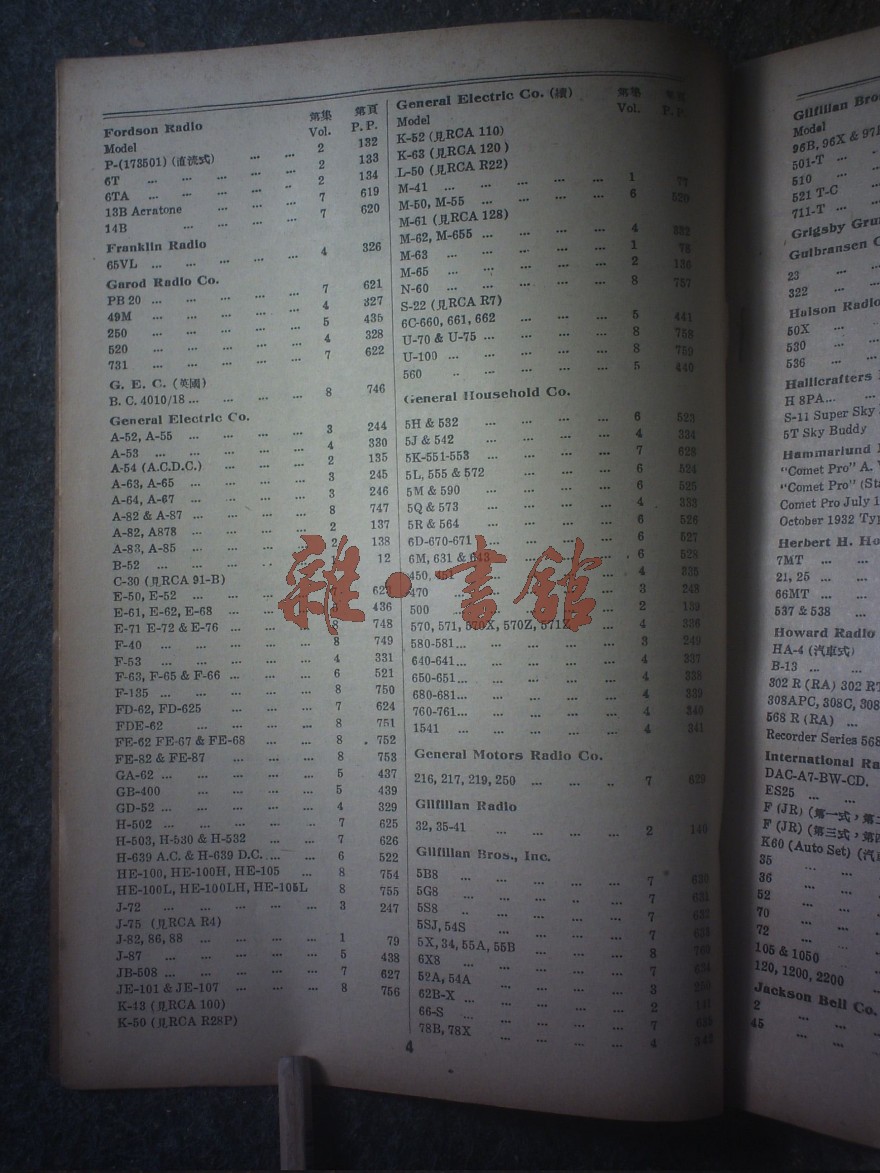 Fordson Radio 第集 第頁
Model Vol. P.P.
P-(173501) (直流式) ... ... 2 132
6T ... ... ... ... ... 2 133
6TA ... ... ... ... .. 2 134
13B Aeratone ... ... ... 7 619
14B ... ... ... ... 7 620
Franklin Radio
65VL ... ... ... ... ... 4 326
Garod Radio Co.
PB 20 ... ... ... ... ... 7 621
49M ... ... ... ... ... 4 327
250 ... ... ... ... ... 5 435
520 ... ... ... ... ... 4 328
731 ... ... ... ... ... 7 622
G. E. C. (英國)
B. C. 4010/18 ... ... ... ... 8 746
General Electric Co.
A-52, A-55 ... ... ... ... 3 244
A-53 ... ... ... ... ... 4 330
A-54 (A.C.D.C.) ... ... ... 2 135
A-63, A-65 ... ... ... ... 3 245
A-64, A-67 ... ... ... ... 3 246
A-82 & A-87 ... ... ... ... 8 747
A-82, A878 ... ... ... ... 2 137
A-83, A-85 ... ... ... ... 2 138
B-52 ... ... ... ... 12
C-30 (見RCA 91-B)
E-50, E-52 ... ... ...
E-61, E-62, E-68 ... ... ... 436
E-71 E-72 & E-76 ... ... ... 8 748
F-40 ... ... ... ... ... 8 749
F-53 ... ... ... ... ... 4 331
F-63, F-65 & F-66 ... ... ... 6 521
F-135 ... ... ... ... ... 8 750
FD-62, FD-625 ... ... ... 7 624
FDE-62 ... ... ... ... 8 751
FE-62 FE-67 & FE-68 ... ... 8 752
FE-82 & FE-87 ... ... ... 8 753
GA-62 ... ... ... ... ... 5 437
GB-400 ... ... ... ... 5 439
GD-52 ... ... ... ... ... 4 329
H-502 ... ... ... ... ... 7 625
H-503, H-530 & H-532 ... ... 7 626
H-639 A.C. & H-639 D.C. ... ... 6 522
HE-100, HE-100H, HE-105 ... ... 8 754
HE-100L, HE-100LH, HE-105L 8 755
J-72 ... ... ... ... ... 3 247
J-75 (見RCA R4)
J-82, 86, 88 ... ... ... ... 1 79
J-87 ... ... ... ... ... 5 438
JB-508 ... ... ... ... ... 7 627
JE-101 & JE-107 ... ... ... 8 756
K-43 (見RCA 100)
K-50 (見RCA R28P)
General Electric Co. (續) 第集
Model Vol. P.P.
K-52 (見RCA 110)
K-63 (見RCA 120)
L-50 (見RCA R22)
M-41 ... ... ... ... ... 1
M-50, M-55 ... ... ... ... 6 520
M-61 (見RCA 128)
M-62, M-655 ... ... ... ... 4
M-63 ... ... ... ... ... 1 78
M-65 ... ... ... ... ... 2 136
N-60 ... ... ... ... ... 8 757
S-22 (見RCA R7)
6C-660, 661, 662 ... ... ... 5 441
U-70 & U-75 ... ... ... ... 8 758
U-100 ... ... ... ... ... 8 759
560 .. ... ... ... ... 5 440
General Household Co.
5H & 532 ... ... ... ... 6 523
5J & 542 ... ... ... ... 4 334
5K-551-553 ... ... ... ... 7 628
5L, 555 & 572 ... ... ... 6 524
5M & 590 ... ... ... ... 6 525
5Q & 573 ... ... ... ... 4 333
5R & 564 ... ... ... ... 6 526
6D-670-671 ... ... ... ... 6 527
6M, 631 & 643 ... ... ... 6 528
450, 451 ... ... ... 4 335
470 ... ... ... ... 3 248
500 ... ... ... ... 2 139
570, 571, 570X, 570Z, 571Z ... 4 336
580-581 ... ... ... ... ... 3 249
640-641 ... ... ... ... ... 4 337
650-651 ... ... ... ... ... 4 338
680-681 ... ... ... ... ... 4 339
760-761 ... ... ... ... ... 4 340
1541 ... ... ... ... ... 4 341
General Motors Radio Co.
216, 217, 219, 250 ... ... .. 7 629
Gilfillan Radio
32, 35-41 ... ... ... ... 2 140
Gilfillan Bros., Inc.
5B8 ... ... ... ... ... 7 630
5G8 ... ... ... ... ... 7 631
5S8 .. ... ... ... ... 7 632
5SJ, 54S ... ... ... ... 7
5X, 34, 55A, 55B ... ... ... 8
6X8 ... ... ... ... ... 7
52A, 54A ... ... ... ... 3
62B-X ... ... ... ... ... 2
66-S ... ... ... ... ... 7
78B, 78X ... ... ... ... 4
4
雜·書舘
Gilfillan Bro
Model
96B, 96X & 97
501-T ...
510 ...
521 T-C
711-T ...
Grigsby Gru
Gulbransen C
23 ...
322 ... ...
Halson Radio
50X ...
530 ...
536 ...
Hallicrafters
H 8PA... ...
S-11 Super Sky
5T Sky Buddy
Hammarlund
"Comet Pro" A.
"Comet Pro" (Sta
Comet Pro July 1
October 1932 Typ
Herbert H. Ho
7MT ...
21, 25 ... ...
66MT ... ...
537 & 538 ...
Howard Radio
HA-4 (汽車式)
B-13 ... ...
302 R (RA) 302 R
308APC, 308C, 308
568 R (RA) ...
Recorder Series 568
International Ra
DAC-A7-BW-CD.
ES25 ... ...
F (JR) (第一式，第二
F (JR) (第三式，第四
K60 (Auto Set) (汽車
35
36 ... ...
52 ... ...
70 ... ...
72 ... ...
105 & 1050 ...
120, 1200, 2200
Jackson Bell Co.
2 ... ...
45 ... ...